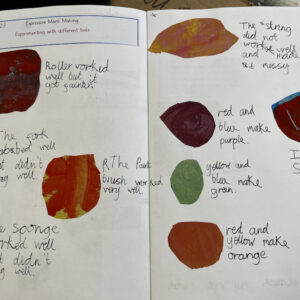 23
Expressive Mark Making
Experimenting with different tools
Roller worked
well but it
got
The fork
well
didn't
well.
The Paint
brush worked
very well.
sponge
worked well
didn't
well.
The string
did not
work well
and made
a messy
red and
blue make
purple.
yellow and
blue make
gren.
red and
yellow make
orange